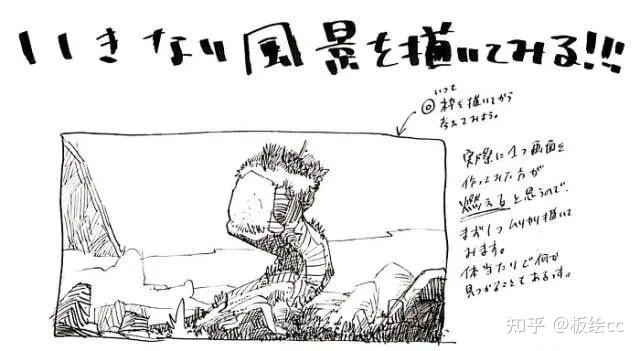 いきなり風景を描いてみる!!!
◎いつも
枠を描いてから
考えてみよう。
実際に1つ画面を
作ってみた方が
燃えると思うので、
まず1つムリヤリ描いて
みます。
体当たりで何か
見つかることもあるっす。
知乎 @板绘cc